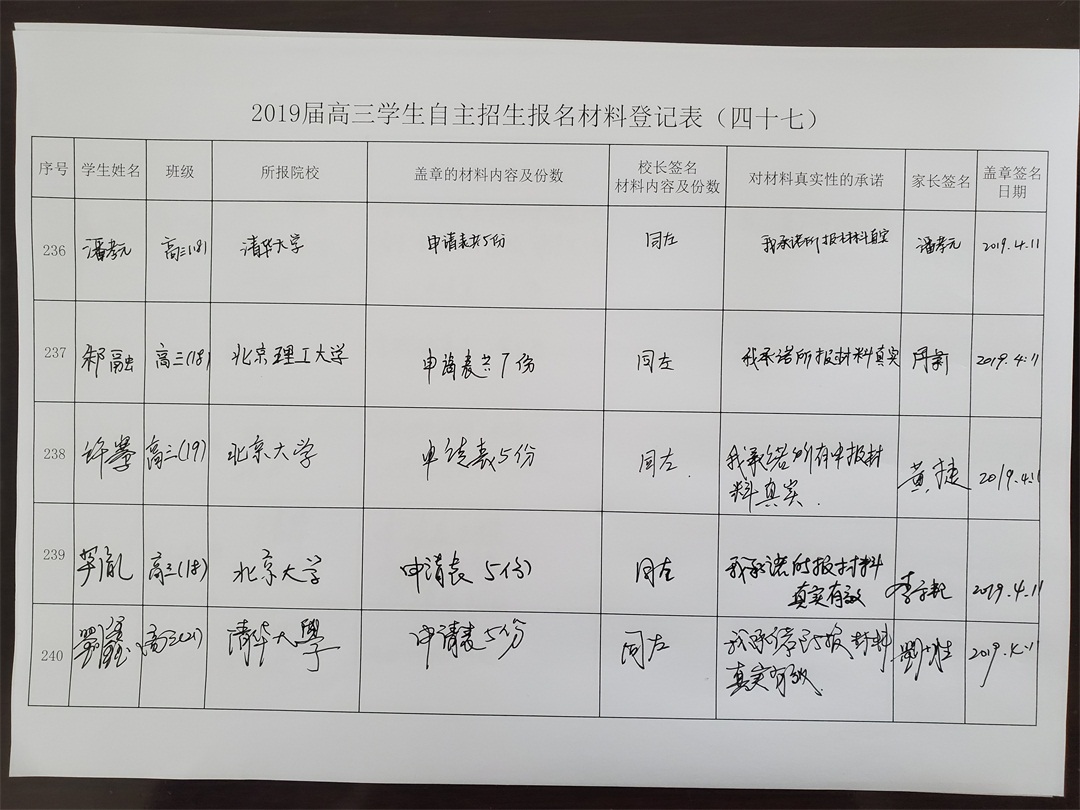 2019届高三学生自主招生报名材料登记表（四十七）
序号 学生姓名 班级 所报院校 盖章的材料内容及份数 校长签名 材料内容及份数 对材料真实性的承诺 家长签名 盖章签名 日期
236 潘孝元 高三(18) 清华大学 申请表共5份 同左 我承诺所报材料真实 潘孝元 2019.4.11
237 郏融 高三(18) 北京理工大学 申请表共7份 同左 我承诺所报材料真实 2019.4.11
238 许攀 高三(19) 北京大学 申请表5份 同左. 我承诺所有申报材
料真实. 黄捷 2019.4.11
239 高三(18) 北京大学 申请表 5份 同左 我承诺所报材料
真实有效 2019.4.11
240 劉 高三(21) 清华大學 申请表5份 同左 我承诺所报材料
真实有效. 劉 2019.4.11